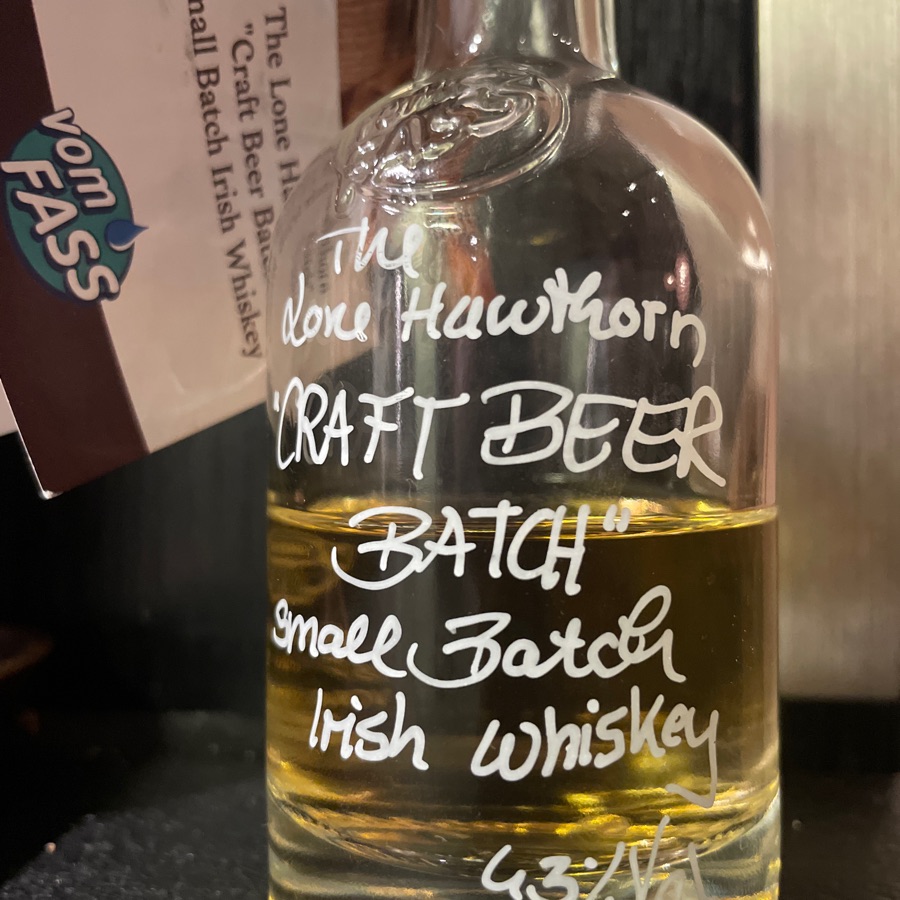 The Lone
"Craft Beer
mall Batch Irish Whiskey
vom
FASS
The
Lone Hawthorn
"CRAFT BEER
BATCH"
Small Batch
Irish Whiskey
43% Vol